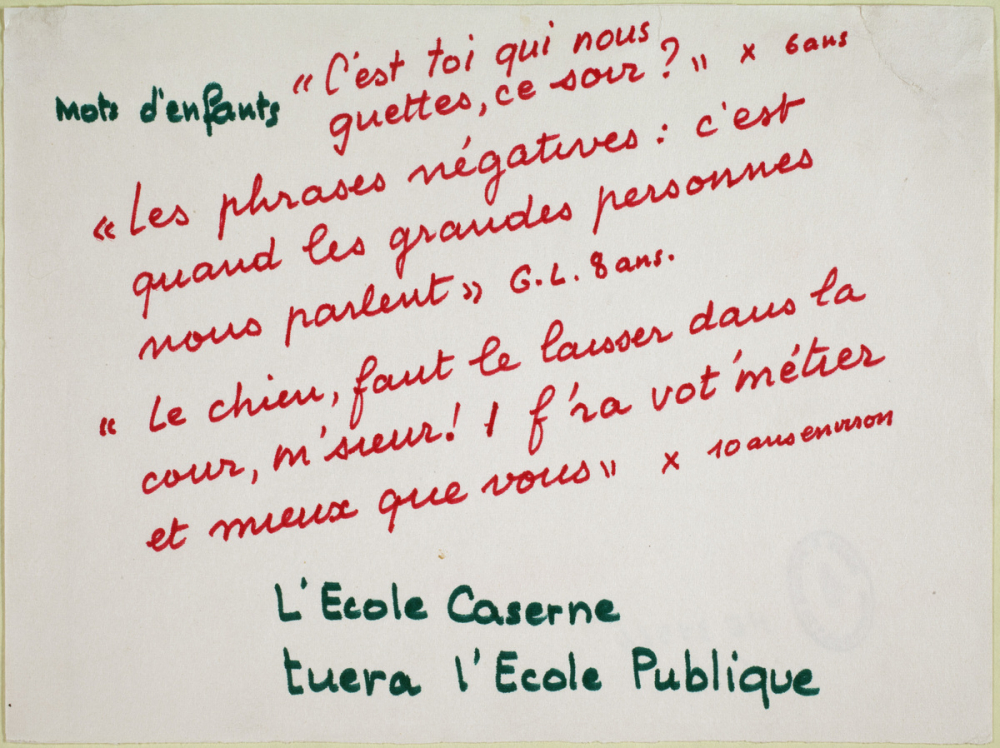 mots d'enfants « C'est toi qui nous
guettes, ce soir ? » x 6 ans
« Les phrases négatives : c'est
quand les grandes personnes
nous parlent » G.L. 8 ans.
« Le chien, faut le laisser dans la
cour, m'sieur ! I f'ra vot'métier
et mieux que vous » x 10 ans environ
L'Ecole Caserne
tuera l'Ecole Publique